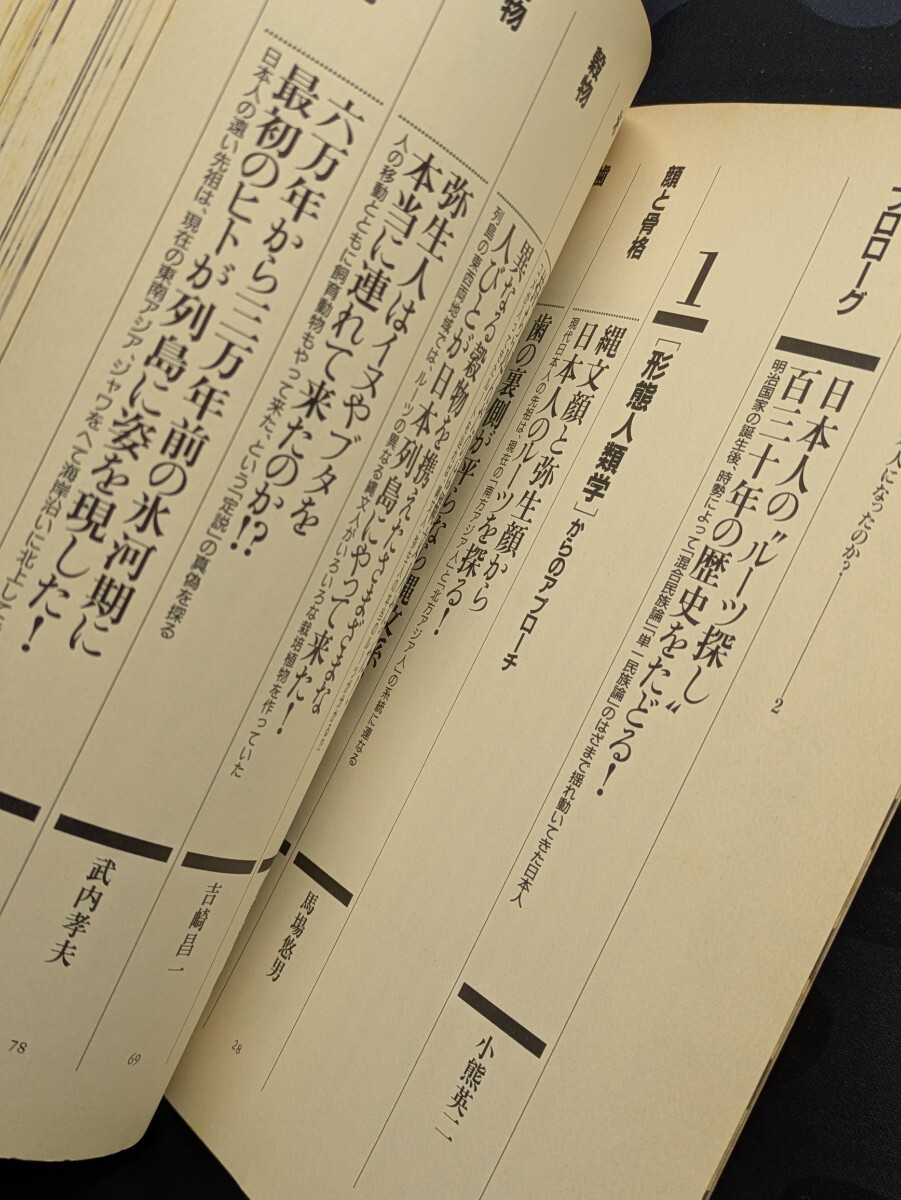 人になったのか?
2
プロローグ
日本人の〝ルーツ探し〟
百三十年の歴史をたどる!
明治国家の誕生後、時勢によって「混合民族論」「単一民族論」のはざまで揺れ動いてきた日本人
小熊英二
1
[形態人類学]からのアプローチ
顔と骨格
縄文顔と弥生顔から
日本人のルーツを探る!
現代日本人の先祖は、現在の「南方アジア人」と「北方アジア人」の系統に連なる
馬場悠男
28
歯
歯の裏側が平らなら縄文系
穀物
異なる穀物を携えたさまざまな
人びとが日本列島にやって来た!
列島の東西両地域では、ルーツの異なる縄文人がいろいろな栽培植物を作っていた
吉崎昌一
69
物
弥生人はイヌやブタを
本当に連れて来たのか!?
人の移動とともに飼育動物もやって来た、という「定説」の真偽を探る
武内孝夫
78
六万年から三万年前の氷河期に
最初のヒトが列島に姿を現した!
日本人の遠い先祖は、現在の東南アジア、ジャワをへて海岸沿いに北上して